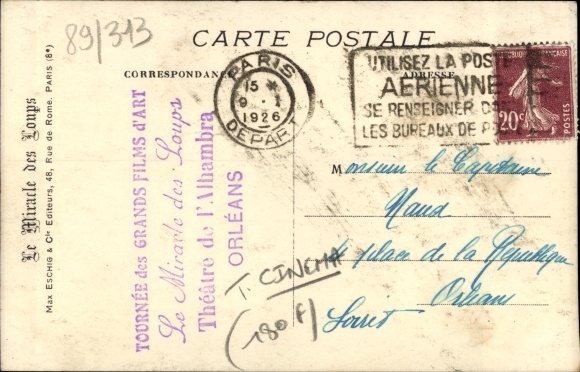 89/313
CARTE POSTALE
CORRESPONDANCE
ADRESSE
PARIS
15 *
9 - 1
1926
DEPART
UTILISEZ LA POSTE
AERIENNE
SE RENSEIGNER DANS
LES BUREAUX DE P
20c
POSTES
Le Miracle des Loups
MAX ESCHIG & Cie Editeurs, 48, Rue de Rome. PARIS (8e)
TOURNÉE des GRANDS FILMS d'ART
Le Miracle des Loups
Théâtre de l'Alhambra
ORLÉANS
Monsieur le Capitaine
place de la République
Orléans
Loiret
T. CINEMA
(180 F)